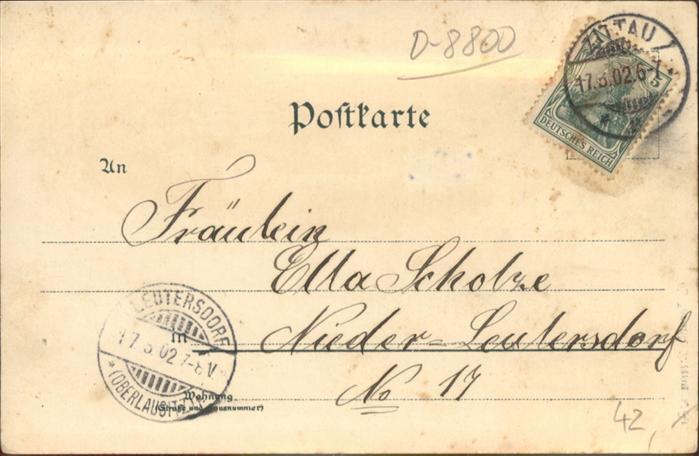 D-8800
ZITTAU
17.3.02.6-7
5
DEUTSCHES REICH
Postkarte
An
Fräulein
Ella Scholze
Nieder-Leutersdorf
in
No 17
LEUTERSDORF
17.3.02.7-8V
*(OBERLAUSITZ)
Wohnung
(Straße und Hausnummer)
42,